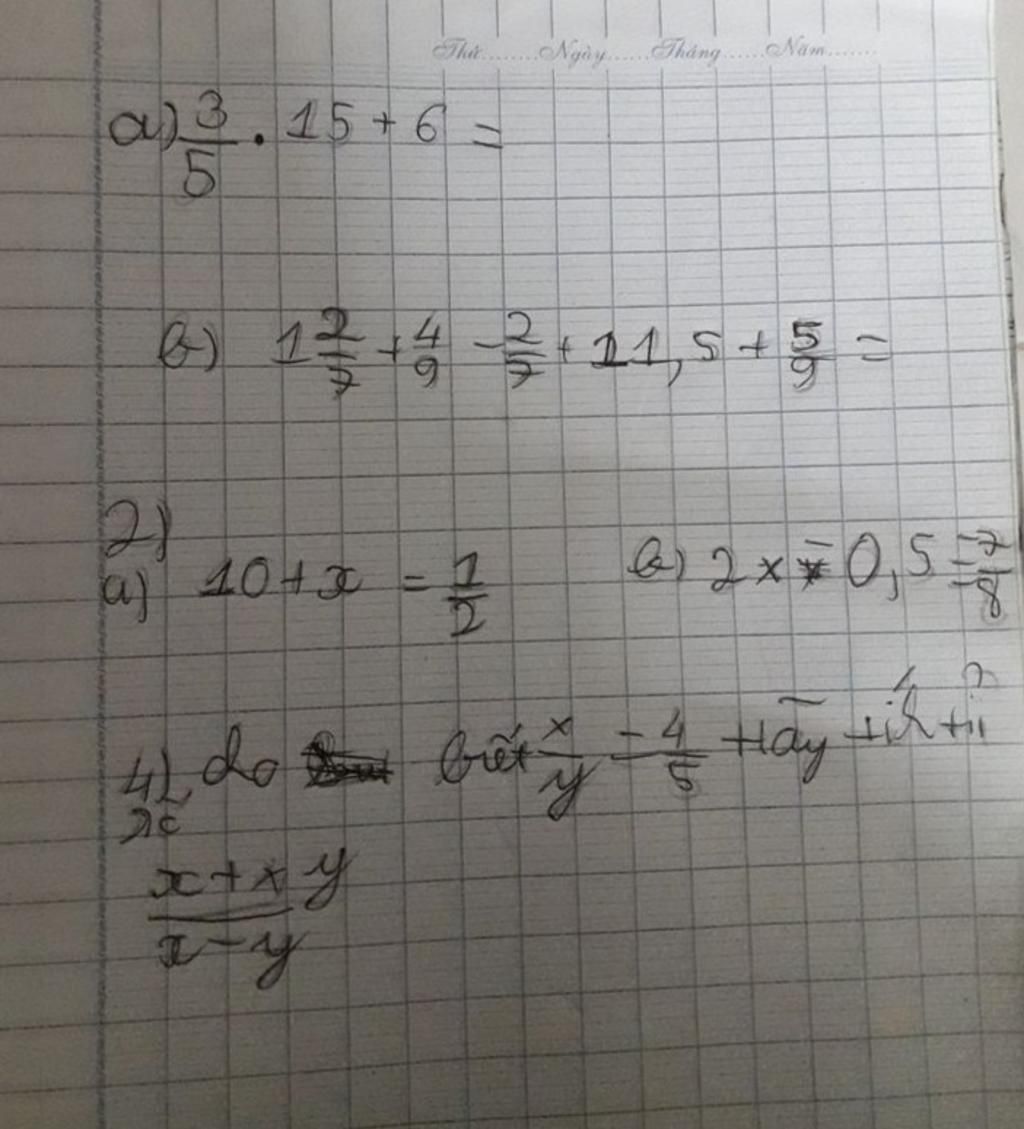 Thứ........Ngày......Tháng......Năm.......
a) 3/5 . 15 + 6 =
b) 1 2/7 + 4/9 - 2/7 + 11,5 + 5/9 =
2)
a) 10 + x = 1/2 b) 2x - 0,5 = 7/8
4) do biết x/y = 4/5 +
x + x y / x - y